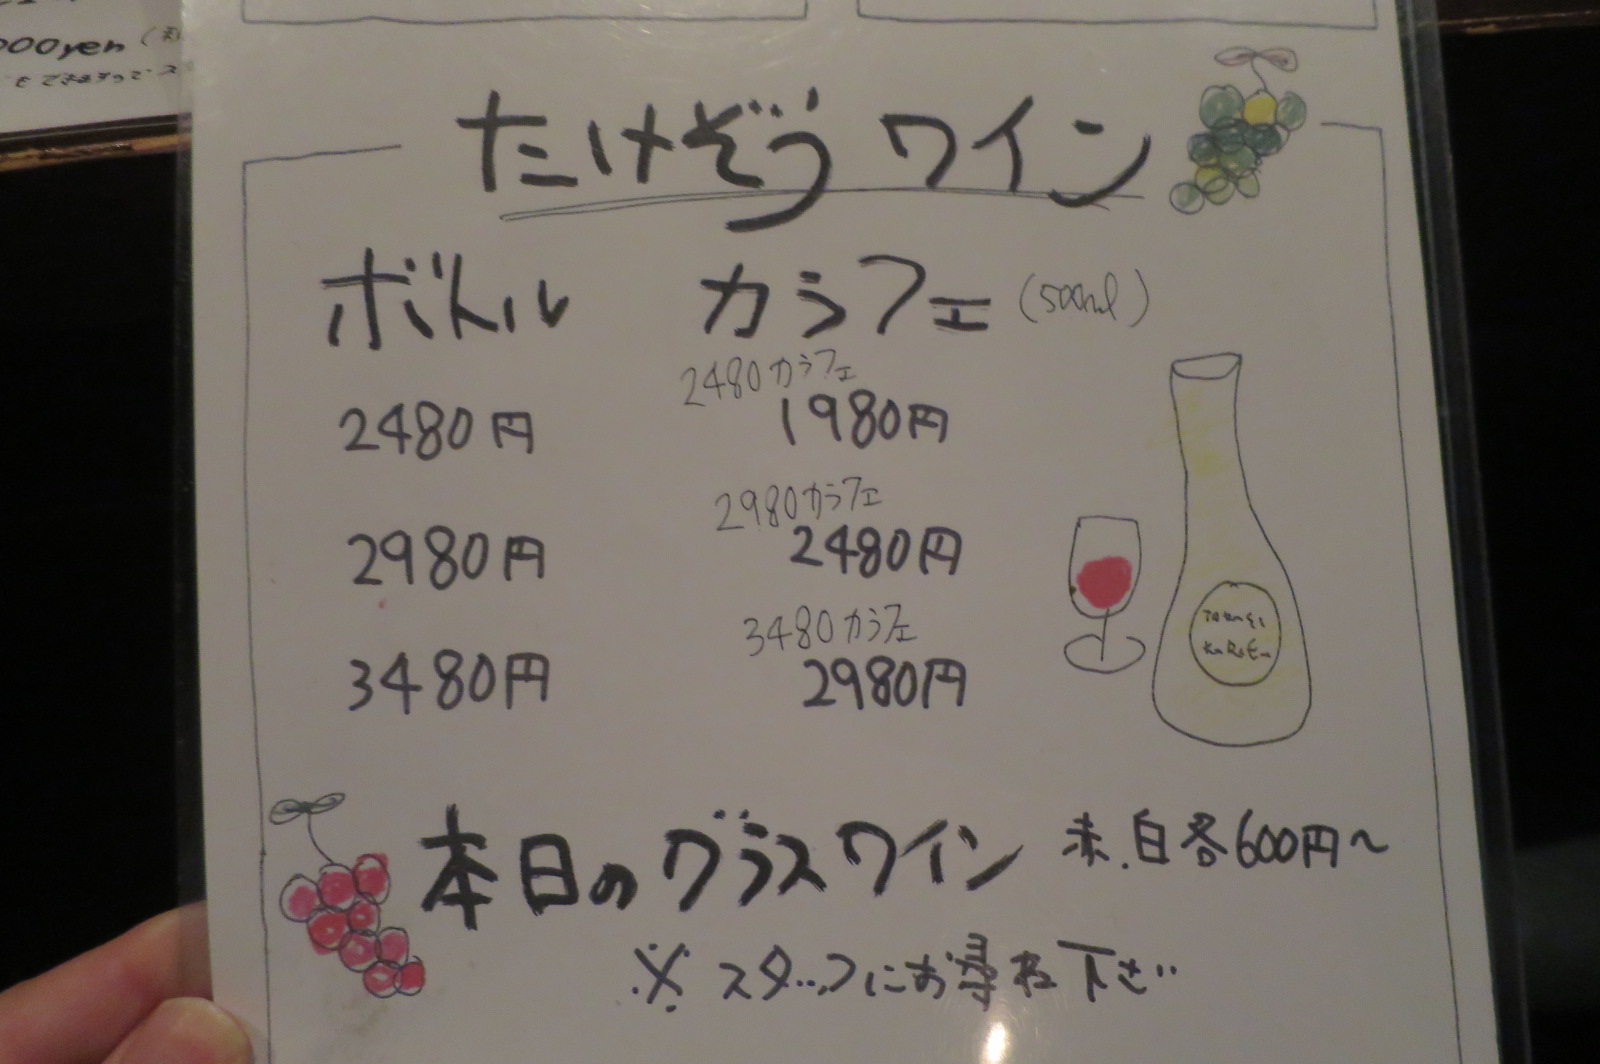 000yen
たけぞうワイン
ボトル カラフェ (500ml)
2480円 2480カラフェ 1980円
2980円 2980カラフェ 2480円
3480円 3480カラフェ 2980円
本日のグラスワイン 赤.白各600円~
※スタッフにお尋ね下さい